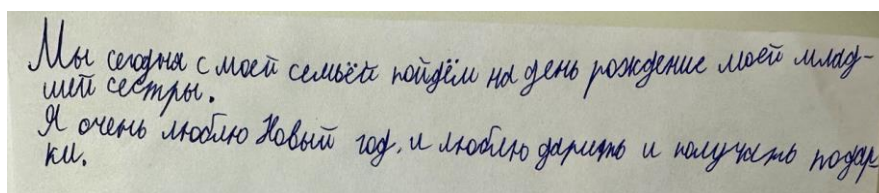 Мы сегодня с моей семьёй пойдём на день рождение моей млад-
шей сестры.
Я очень люблю Новый год, и люблю дарить и получать подар-
ки.